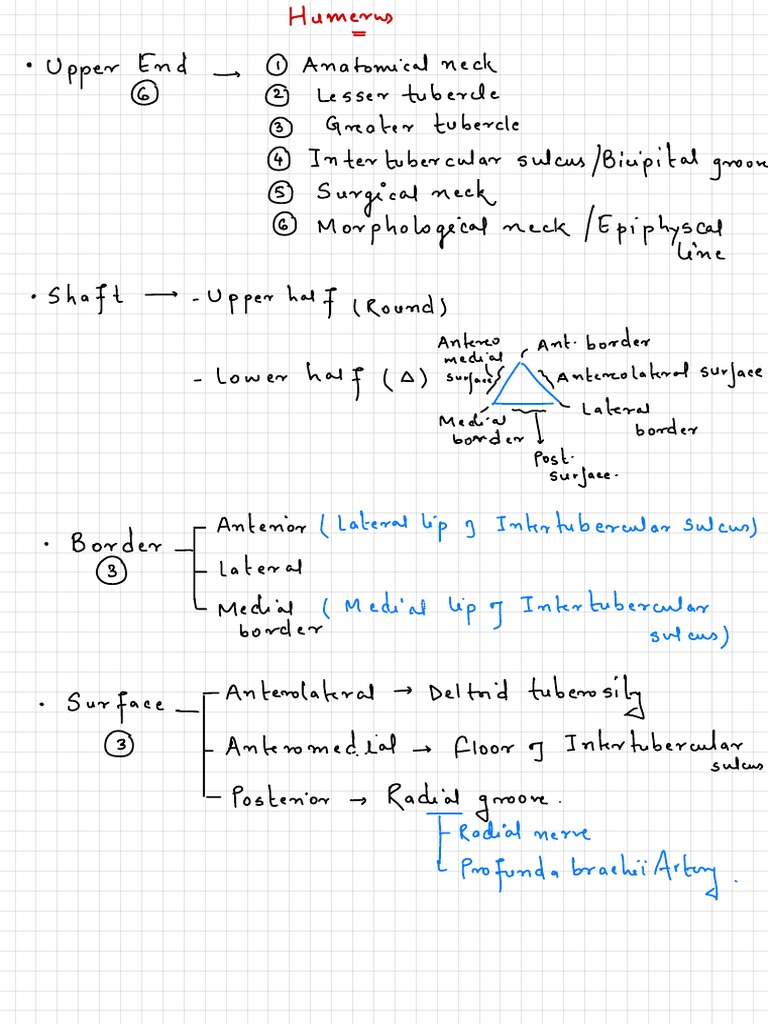 Humerus
• Upper End → ① Anatomical neck
⑥ ② Lesser tubercle
③ Greater tubercle
④ Intertubercular sulcus/Bicipital groove
⑤ Surgical neck
⑥ Morphological neck /Epiphyscal
line
• Shaft → - Upper half (Round)
- Lower half (Δ)
Antero
medial
surface
Ant. border
Anterolateral surface
Lateral
border
Medial
border
Post.
surface.
• Border
③
Anterior (Lateral lip of Intertubercular sulcus)
Lateral
Medial (Medial lip of Intertubercular
border sulcus)
• Surface
③
Anterolateral → Deltoid tuberosity
Anteromedial → floor of Intertubercular
sulcus
Posterior → Radial groove.
Radial nerve
Profunda brachii Artery.